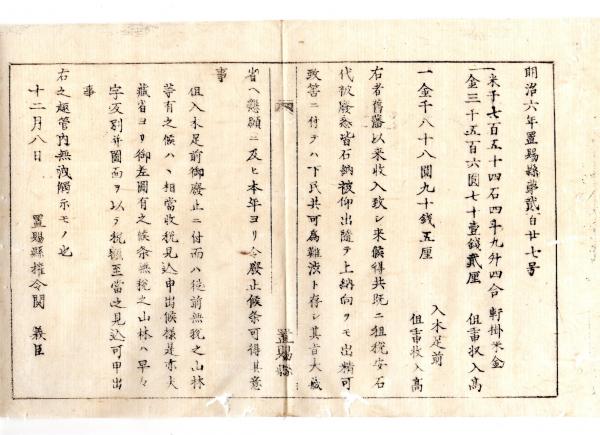 明治六年置賜縣第貳百廿七号
一米千七百五十四石四斗九升四合 軒掛米金
一金三千五百六圓七十壹錢貳厘 但重収入高
一金千八十八圓九十錢五厘 入木足前
但重収入高
右者舊藩以来収入致シ来候得共既ニ租税安石
代被廢悉皆石納被仰出隨テ上納向ヲモ出精可
致筈ニ付テハ下民共可為難渋ト存シ其旨大蔵
省ヘ懇願ニ及ヒ本年ヨリ令廢止候条可得其意
事
但入木足前御廢止ニ付而ハ従前無税之山林
等有之候ハヽ相當収税見込申出候様是亦大
蔵省ヨリ御差圖有之候条無税之山林ハ早々
字反別并圖面ヲ以テ税額至當之見込可申出
事
右之趣管内無洩觸示モノ也
十二月八日 置賜縣権令関 義臣
置賜縣